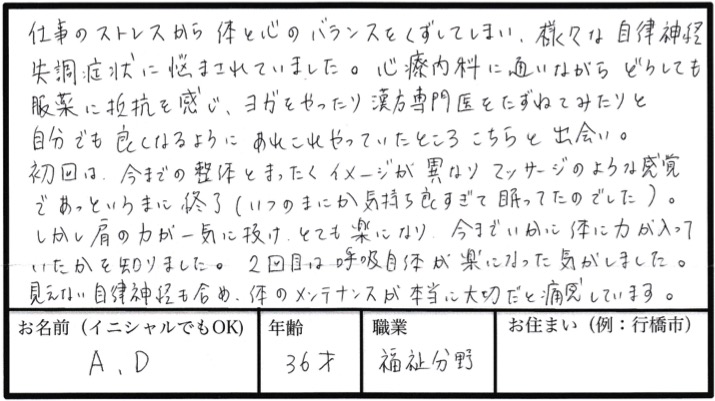 仕事のストレスから 体と心の バランスをくずしてしまい、様々な 自律神経
失調症状に 悩まされていました。心療内科に 通いながら どうしても
服薬に 抵抗を 感じ、ヨガをやったり 漢方専門医をたずねてみたりと
自分でも 良くなるように あれこれやっていたところ こちらと 出会い。
初回は、今までの 整体と まったく イメージが 異なり マッサージのような感覚
で あっというまに 終了(いつのまにか 気持ち良すぎて 眠ってたのでした)。
しかし 肩の力が一気に 抜け、とても 楽になり、今まで いかに 体に 力が入って
いたかを 知りました。2回目は 呼吸自体が 楽になった 気がしました。
見えない 自律神経も含め、体の メンテナンスが 本当に 大切だと 痛感しています。
お名前(イニシャルでもOK) 年齢 職業 お住まい(例:行橋市)
A、D 36才 福祉分野